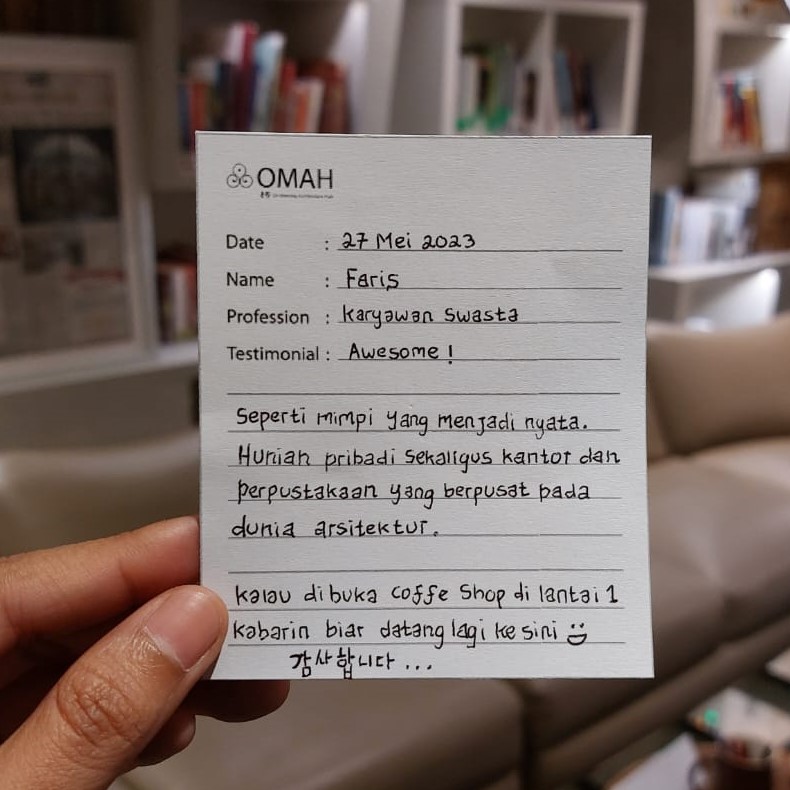 OMAH
Date : 27 Mei 2023
Name : Faris
Profession : Karyawan swasta
Testimonial : Awesome !
Seperti mimpi yang menjadi nyata.
Hunian pribadi sekaligus kantor dan
perpustakaan yang berpusat pada
dunia arsitektur.
Kalau dibuka Coffe Shop di lantai 1
Kabarin biar datang lagi ke sini
감사합니다...